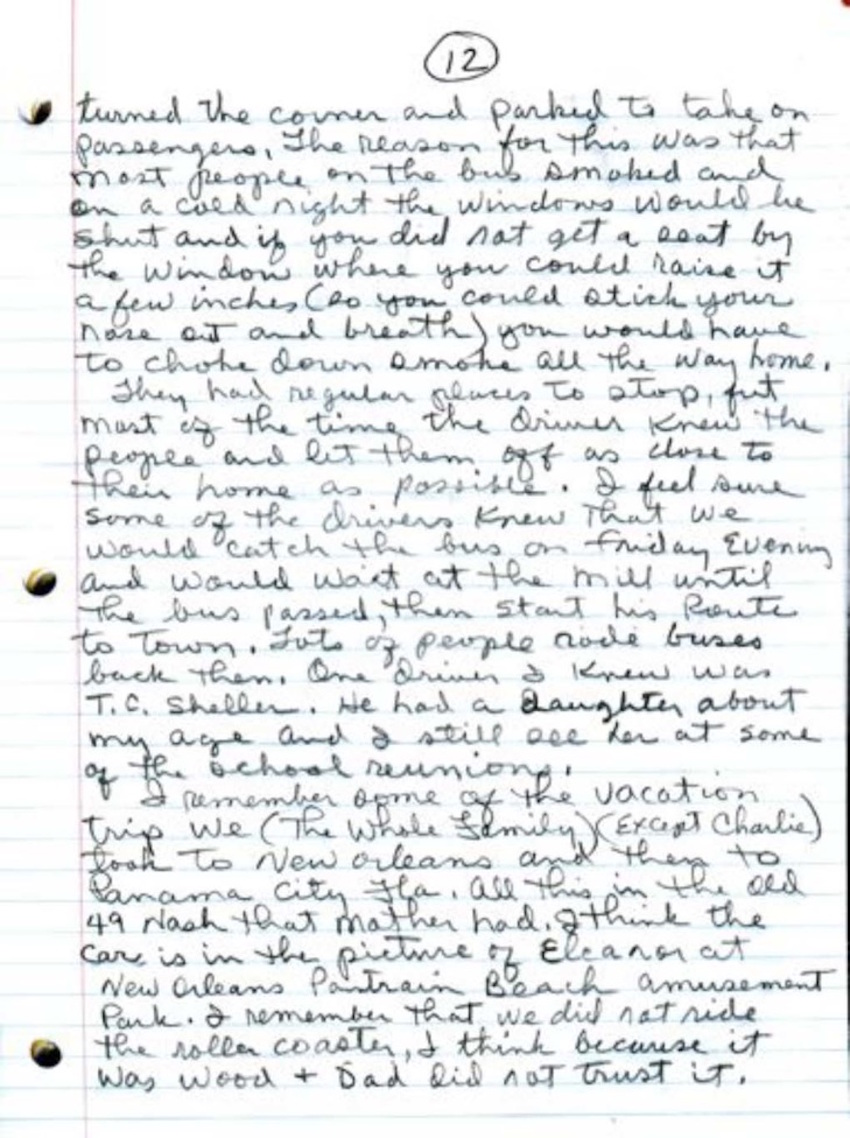 12
turned the corner and parked to take on
passengers. The reason for this was that
most people on the bus smoked and
on a cold night the windows would be
shut and if you did not get a seat by
the window where you could raise it
a few inches (so you could stick your
nose out and breath) you would have
to choke down smoke all the way home.
They had regular places to stop, but
most of the time the driver knew the
people and let them off as close to
their home as possible. I feel sure
some of the drivers knew that we
would catch the bus on Friday Evening
and would wait at the mill until
the bus passed, then start his Route
to Town. Lots of people rode buses
back then. One driver I knew was
T.C. Sheller. He had a daughter about
my age and I still see her at some
of the school reunions.
I remember some of the vacation
trip we (The Whole Family) (Except Charlie)
took to New Orleans and then to
Panama City Fla. All this in the old
49 Nash that mother had. I think the
car is in the picture of Eleanor at
New Orleans Pontrain Beach amusement
Park. I remember that we did not ride
the roller coaster, I think because it
was wood + Dad did not trust it.